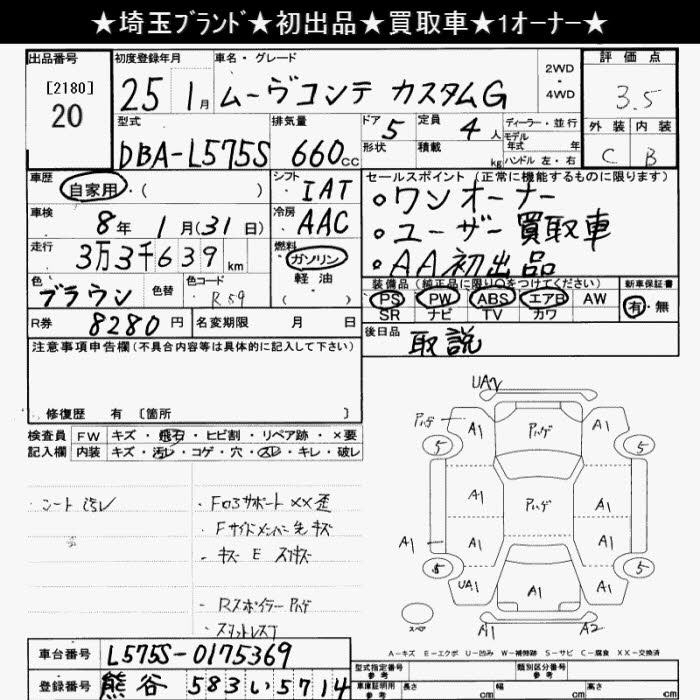 ★埼玉ブランド★初出品★買取車★1オーナー★
出品番号
[2180]
20
初度登録年月
25 1月
車名・グレード
ムーヴコンテ カスタムG
2WD
・
4WD
評価点
3.5
外装 内装
C B
型式
DBA-L575S
排気量
660cc
ドア 5
形状
定員 4人
積載 kg
ディーラー・並行
モデル
年式 年
ハンドル 左・右
車歴
自家用・( )
シフト
IAT
車検
8年1月(31日)
冷房
AAC
走行
3万3千639km
燃料
ガソリン
軽油
( )
色
ブラウン
色替
色コード
R59
R券 8280円
名変期限 月 日
セールスポイント(正常に機能するものに限ります)
。ワンオーナー
。ユーザー買取車
。AA初出品
装備品(純正品に限り○をつけてください)
PS PW ABS エアB AW
SR ナビ TV カワ
新車保証書
有・無
後日品
取説
注意事項申告欄(不具合内容等は具体的に記入して下さい)
修復歴 有〔箇所 〕
検査員
記入欄
FW キズ・飛石・ヒビ割・リペア跡・×要
内装 キズ・汚レ・コゲ・穴・スレ・キレ・破レ
シート汚レ
・Fロアサポート ××歪
・Fサイドメンバー先キズ
・キズ E スリキズ
・Rスポイラー ハゲ
UA2
ハゲ
A1
ハゲ
A1
5
5
A1
ハゲ
A1
A1
A1
A1
5
5
UA1
A1
A1
スペア
A1
A2
A-キズ E-エクボ U-凹み W-補修跡 S-サビ C-腐食 XX-交換済
車台番号 L575S-0175369
登録番号 熊谷 583 い 5714
型式指定番号
参考
類別区分番号
参考
車庫証明用
参考
長さ cm
幅 cm
高さ cm